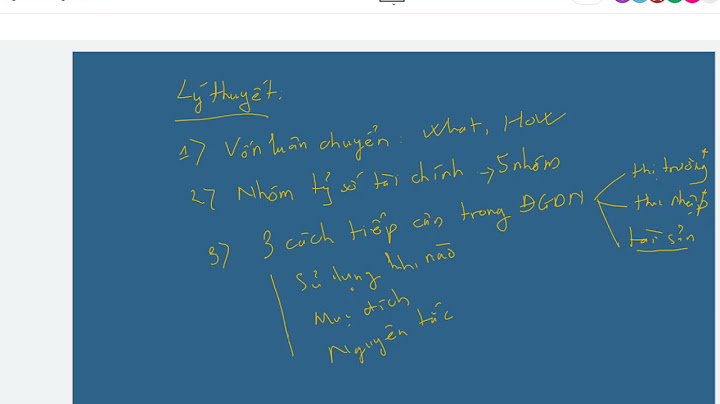 Lý thuyết:
1) Vốn luân chuyển: What, How
2) Nhóm tỷ số tài chính → 5 nhóm
3) 3 cách tiếp cận trong ĐGDN
thị trường
thu nhập
tài sản
Sử dụng khi nào
Mục đích
Nguyên tắc